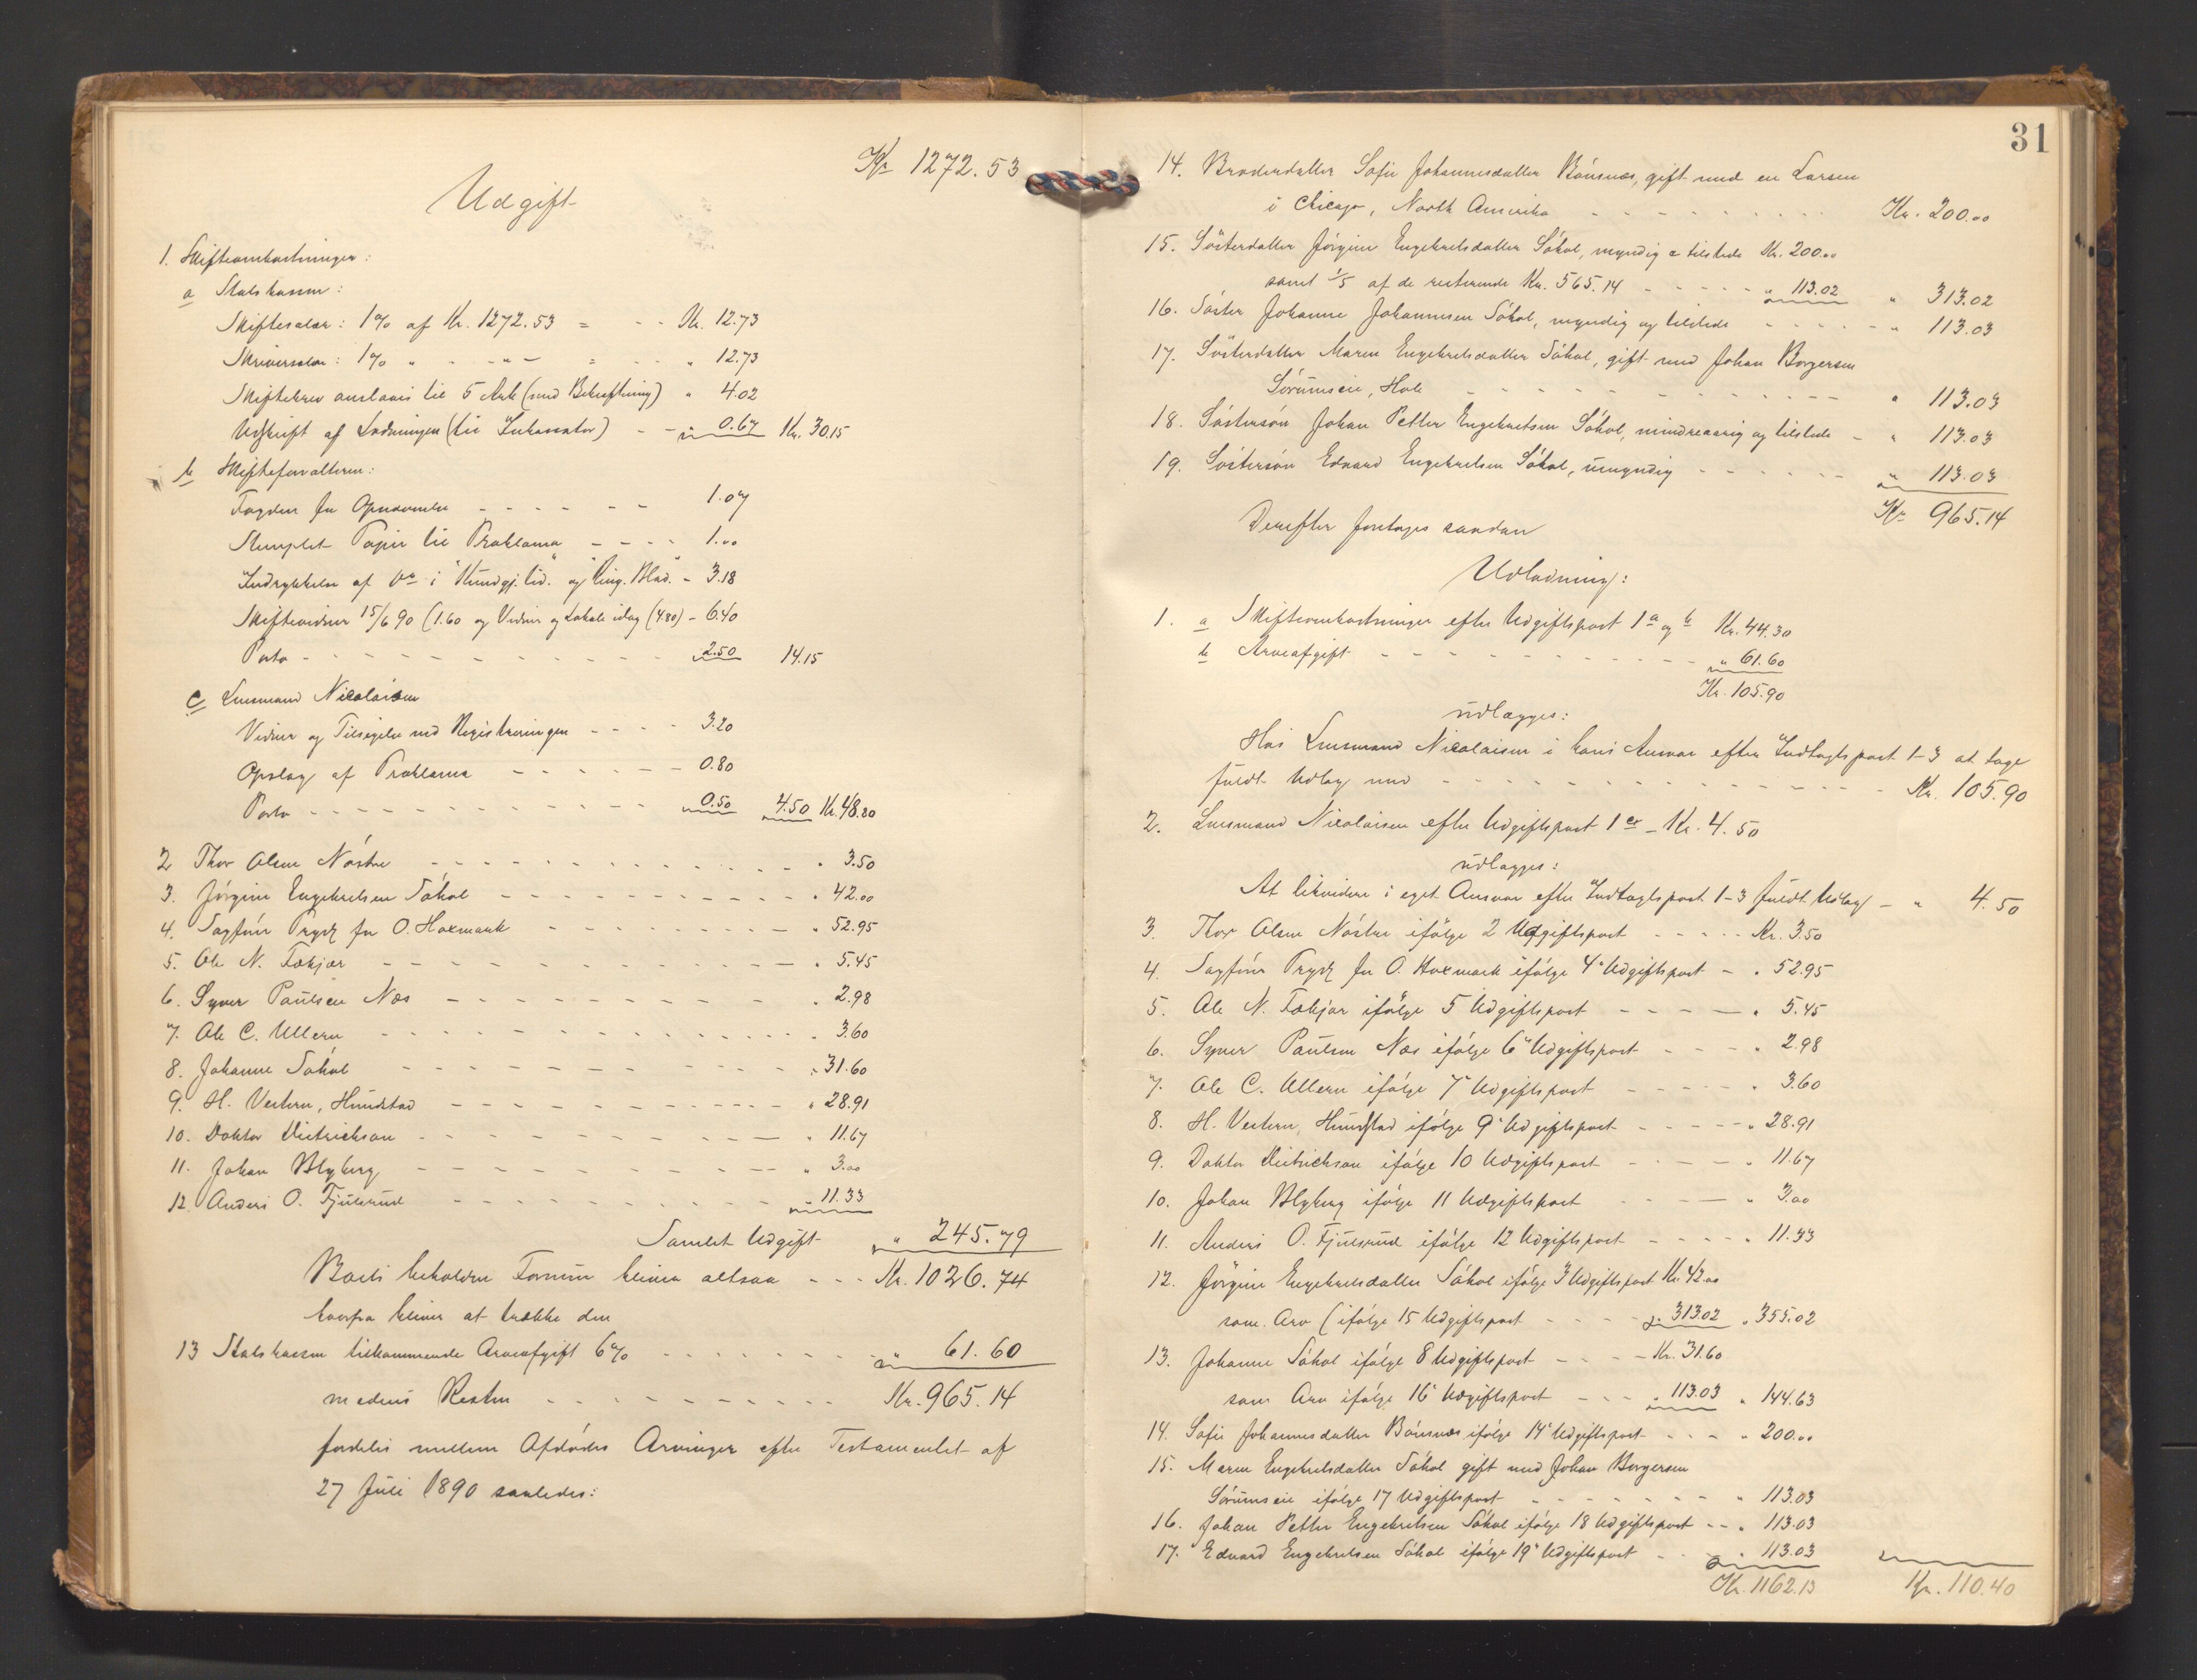 Kr 1272.53
Udgift
1. Skifteomkostninger:
a Statskassen:
Skiftesalær: 1% af Kr. 1272.53 = - - Kr. 12.73
Skriversalær: 1% " - - " - = - - " 12.73
Skiftebrev anslaaes til 5 Ark (med Bekræftning) " 4.02
Udskrift af Lodningen (til Inkassator) - - " 0.67 Kr. 30.15
b Skifteforvalteren:
Fogden for Opnævnelse - - - - - - 1.07
Stemplet Papir til Proklama - - - - 1.00
Indrykkelse af Do i "Kundgj. tid." og "Ring. Blad." - 3.18
Skiftevidner 15/6 90 (1.60 og Vidner og Lokale idag (4.80) - 6.40
Porto - - - - - - - - - - - 2.50 14.15
c Lensmand Nicolaisen
Vidner og Tilsigelse ved Registreringen - - - - 3.20
Opslag af Proklama - - - - - - 0.80
Porto - - - - - - - - - - - " 0.50 4.50 Kr. 48.80
2 Thor Olsen Nöstre - - - - - - - - - - - - " 3.50
3. Jörgine Engebretsen Söhol - - - - - - - - - - " 42.00
4. Sagförer Prydz for O. Hoxmark - - - - - - - - - " 52.95
5. Ole N. Fækjær - - - - - - - - - - - - - " 5.45
6. Syver Paulsen Næs - - - - - - - - - - " 2.98
7. Ole C. Ullern - - - - - - - - - - - - - - " 3.60
8. Johanne Söhol - - - - - - - - - - - - " 31.60
9. H. Vestern, Hundstad - - - - - - - - - - - " 28.91
10. Doktor Dietrichson - - - - - - - - - - - " 11.67
11. Johan Blyberg - - - - - - - - - - - - " 3.00
12 Anders O. Fjulsrud - - - - - - - - - - - " 11.33
Samlet Udgift " 245.79
Boets beholdne Formue bliver altsaa - - - Kr. 1026.74
hvorfra bliver at trække den
13 Statskassen tilkommende Arveafgift 6% - - - - - - - " 61.60
medens Resten - - - - - - - - - - Kr. 965.14
fordeles mellem Afdödes Arvinger efter Testamentet af
27 Juli 1890 saaledes:
31
14. Broderdatter Sofie Johannesdatter Bönsnæs, gift med en Larsen
i Chicago, North Amerika - - - - - - - - - - Kr. 200.00
15. Sösterdatter Jörgine Engebretsdatter Söhol, myndig & tilstede Kr. 200.00
samt 1/5 af de resterende Kr. 565.14 - - - - - - " 113.02 " 313.02
16. Söster Johanne Johannesen Söhol, myndig og tilstede - - - - - - " 113.03
17. Sösterdatter Maren Engebretsdatter Söhol, gift med Johan Borgersen
Sörumseie, Hole - - - - - - - - - - - - " 113.03
18. Söstersön Johan Petter Engebretsen Söhol, mindreaarig og tilstede - " 113.03
19. Söstersön Edvard Engebretsen Söhol, umyndig - - - - - - - " 113.03
Kr 965.14
Derefter foretages saadan
Udlodning:
1. a Skifteomkostninger efter Udgiftspost 1a og b Kr. 44.30
b Arveafgift - - - - - - - - - - - - " 61.60
Kr. 105.90
udlægges:
Hos Lensmand Nicolaisen i hans Ansvar efter Indtægtspost 1-3 at tage
fuldt Udlæg med - - - - - - - - - - - - - - - - Kr. 105.90
2. Lensmand Nicolaisen efter Udgiftspost 1 c - Kr. 4.50
udlægges:
At likvidere i eget Ansvar efter Indtægtspost 1-3 fuldt Udlæg - " 4.50
3. Thor Olsen Nöstre ifölge 2 Udgiftspost - - - - - Kr. 3.50
4. Sagförer Prydz for O. Hoxmark ifölge 4 Udgiftspost - " 52.95
5. Ole N. Fækjær ifölge 5 Udgiftspost - - - - - " 5.45
6. Syver Paulsen Næs ifölge 6 Udgiftspost - - - - " 2.98
7. Ole C. Ullern ifölge 7 Udgiftspost - - - - - " 3.60
8. H. Vestern, Hundstad ifölge 9 Udgiftspost - - - - - " 28.91
9. Doktor Dietrichson ifölge 10 Udgiftspost - - - - " 11.67
10. Johan Blyberg ifölge 11 Udgiftspost - - - - - " 3.00
11. Anders O. Fjulsrud ifölge 12 Udgiftspost - - - - - " 11.33
12. Jörgine Engebretsdatter Söhol ifölge 3 Udgiftspost Kr. 42.00
som Arv (ifölge 15 Udgiftspost - - - - " 313.02 " 355.02
13. Johanne Söhol ifölge 8 Udgiftspost - - - - Kr. 31.60
som Arv ifölge 16 Udgiftspost - - - " 113.03 " 144.63
14. Sofie Johannesdatter Bönsnæs ifölge 14 Udgiftspost - - - " 200.00
15. Maren Engebretsdatter Söhol gift med Johan Borgersen
Sörumseie ifölge 17 Udgiftspost - - - - - - - - " 113.03
16. Johan Petter Engebretsen Söhol ifölge 18 Udgiftspost - - " 113.03
17. Edvard Engebretsen Söhol ifölge 19 Udgiftspost - - - " 113.03
Kr. 1162.13 Kr. 110.40